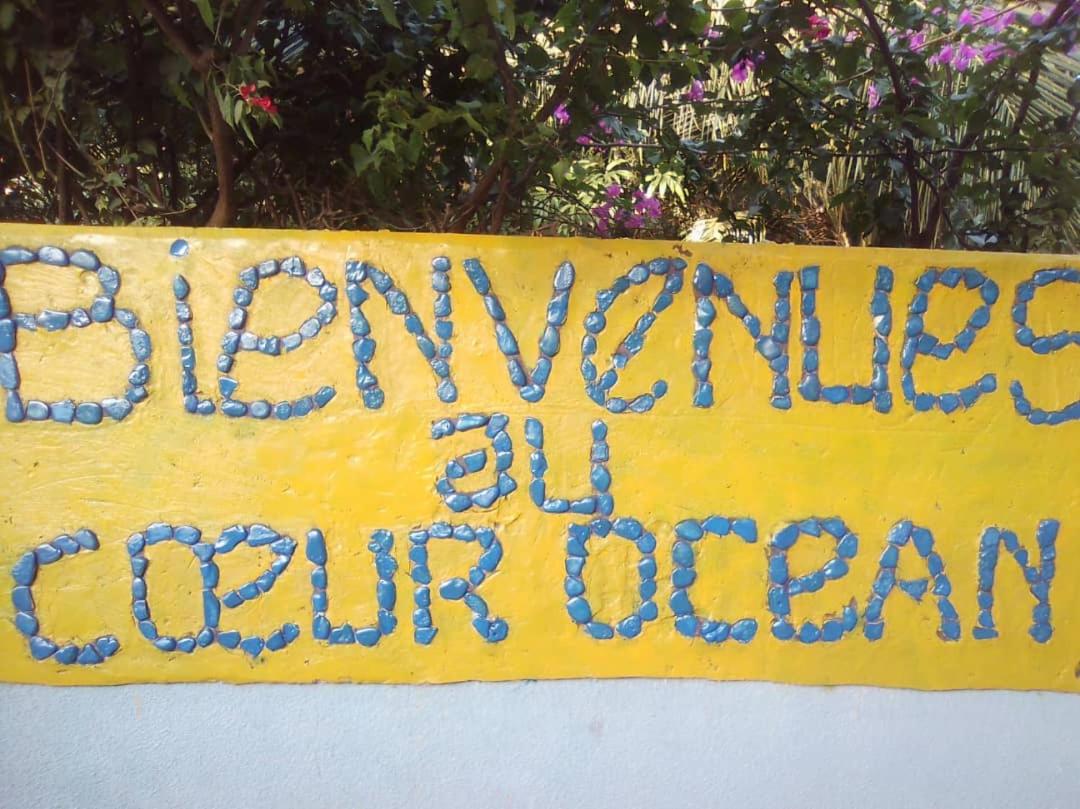 BieNVeNUes
au
CœUR OceAN